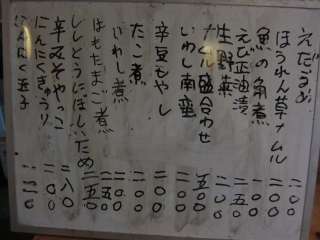 えだまめ 二〇〇
ほうれん草ナムル 二〇〇
魚の角煮 一〇〇
えび正油漬 二五〇
生野菜 二〇〇
ナムル盛合わせ 五〇〇
いわし南蛮 二〇〇
辛豆もやし 二〇〇
たこ煮 二〇〇
いわし煮 二〇〇
はもたまご煮 二五〇
ししとうにぼしいため 二五〇
辛みそやっこ 二八〇
にんにくきゅうり 二〇〇
玉子